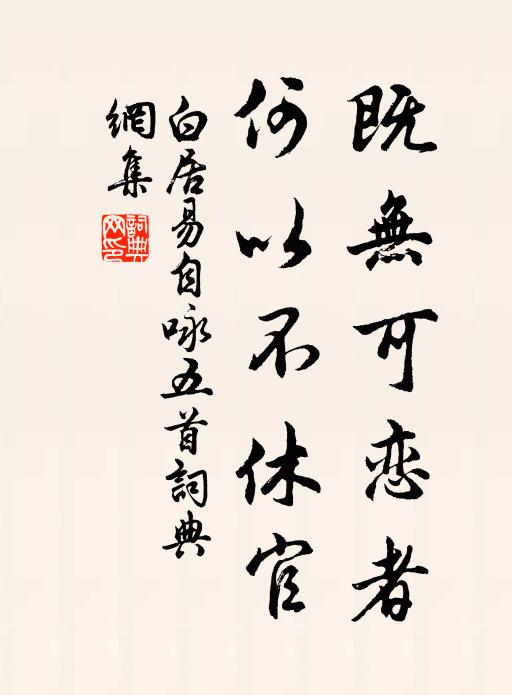 既無可恋者
何以不休官
白居易自咏五首詞典
網集
詞典網印